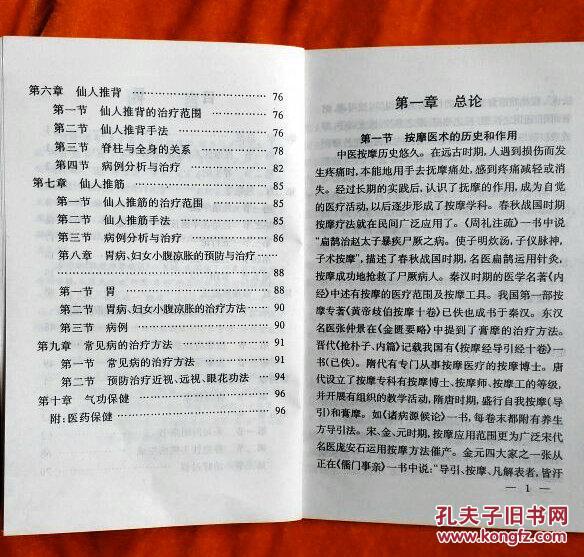 第六章 仙人推背 …………………… 76
第一节 仙人推背的治疗范围 …………… 76
第二节 仙人推背手法 …………………… 76
第三节 脊柱与全身的关系 ……………… 78
第四节 病例分析与治疗 ………………… 82
第七章 仙人推筋 …………………… 85
第一节 仙人推筋的治疗范围 …………… 85
第二节 仙人推筋手法 …………………… 85
第三节 病例分析与治疗 ………………… 86
第八章 胃病、妇女小腹凉胀的预防与治疗 ……
…………………………………… 88
第一节 胃 ……………………………… 88
第二节 胃病、妇女小腹凉胀的治疗方法 … 90
第三节 病例 …………………………… 90
第九章 常见病的治疗方法 …………… 91
第一节 常见病的治疗方法 ……………… 91
第二节 预防治疗近视、远视、眼花功法 … 94
第十章 气功保健 …………………… 96
附:医药保健 ………………………… 96
第一章 总论
第一节 按摩医术的历史和作用
中医按摩历史悠久。在远古时期,人遇到损伤而发
生疼痛时,本能地用手去抚摩痛处,感到疼痛减轻或消
失。经过长期的实践后,认识了抚摩的作用,成为自觉
的医疗活动,以后逐步形成了按摩学科。春秋战国时期
按摩疗法就在民间广泛应用了。《周礼注疏》一书中说
“扁鹊治赵太子暴疾尸厥之病。使子明炊汤,子仪脉神,
子术按摩”,描述了春秋战国时期,名医扁鹊运用针灸、
按摩成功地抢救了尸厥病人。秦汉时期的医学名著《内
经》中述有按摩的医疗范围及按摩工具。我国第一部按
摩专著《黄帝歧伯按摩十卷》已佚也成书于秦汉。东汉
名医张仲景在《金匮要略》中提到了膏摩的治疗方法。
晋代《抢朴子、内篇》记载我国有《按摩经导引经十卷》一
书(已佚)。隋代有专门从事按摩医疗的按摩博士。唐
代设立了按摩专科有按摩博士、按摩师、按摩工的等级,
并开展有组织的教学活动,隋唐时期,盛行自我按摩(导
引)和膏摩。如《诸病源候论》一书,每卷末都附有养生
方导引法。宋、金、元时期,按摩应用范围更为广泛宋代
名医庞安石运用按摩方法催产。金元四大家之一张从
正在《儒门事亲》一书中说:“导引、按摩、凡解表者,皆汗
— 1 —
孔夫子旧书网